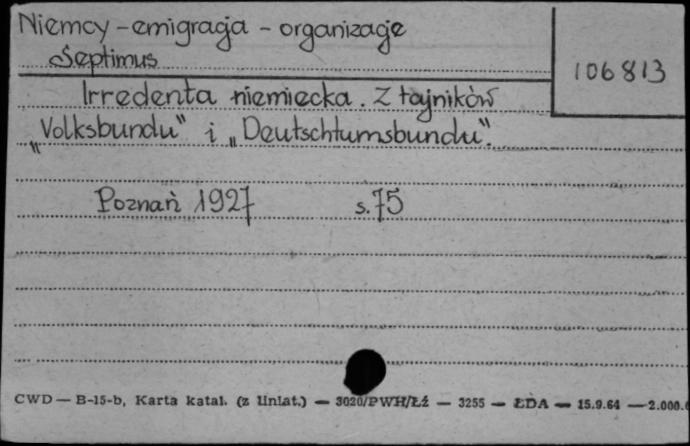 Niemcy - emigracja - organizacje
Septimus
106813
Irredenta niemiecka. Z tajników
„Volksbundu" i „Deutschtumsbundu".
Poznań 1927 s. 75
CWD — B-15-b, Karta katal. (z liniat.) — 3020/PWH/Łź — 3255 — ŁDA — 15.9.64 — 2.000.0